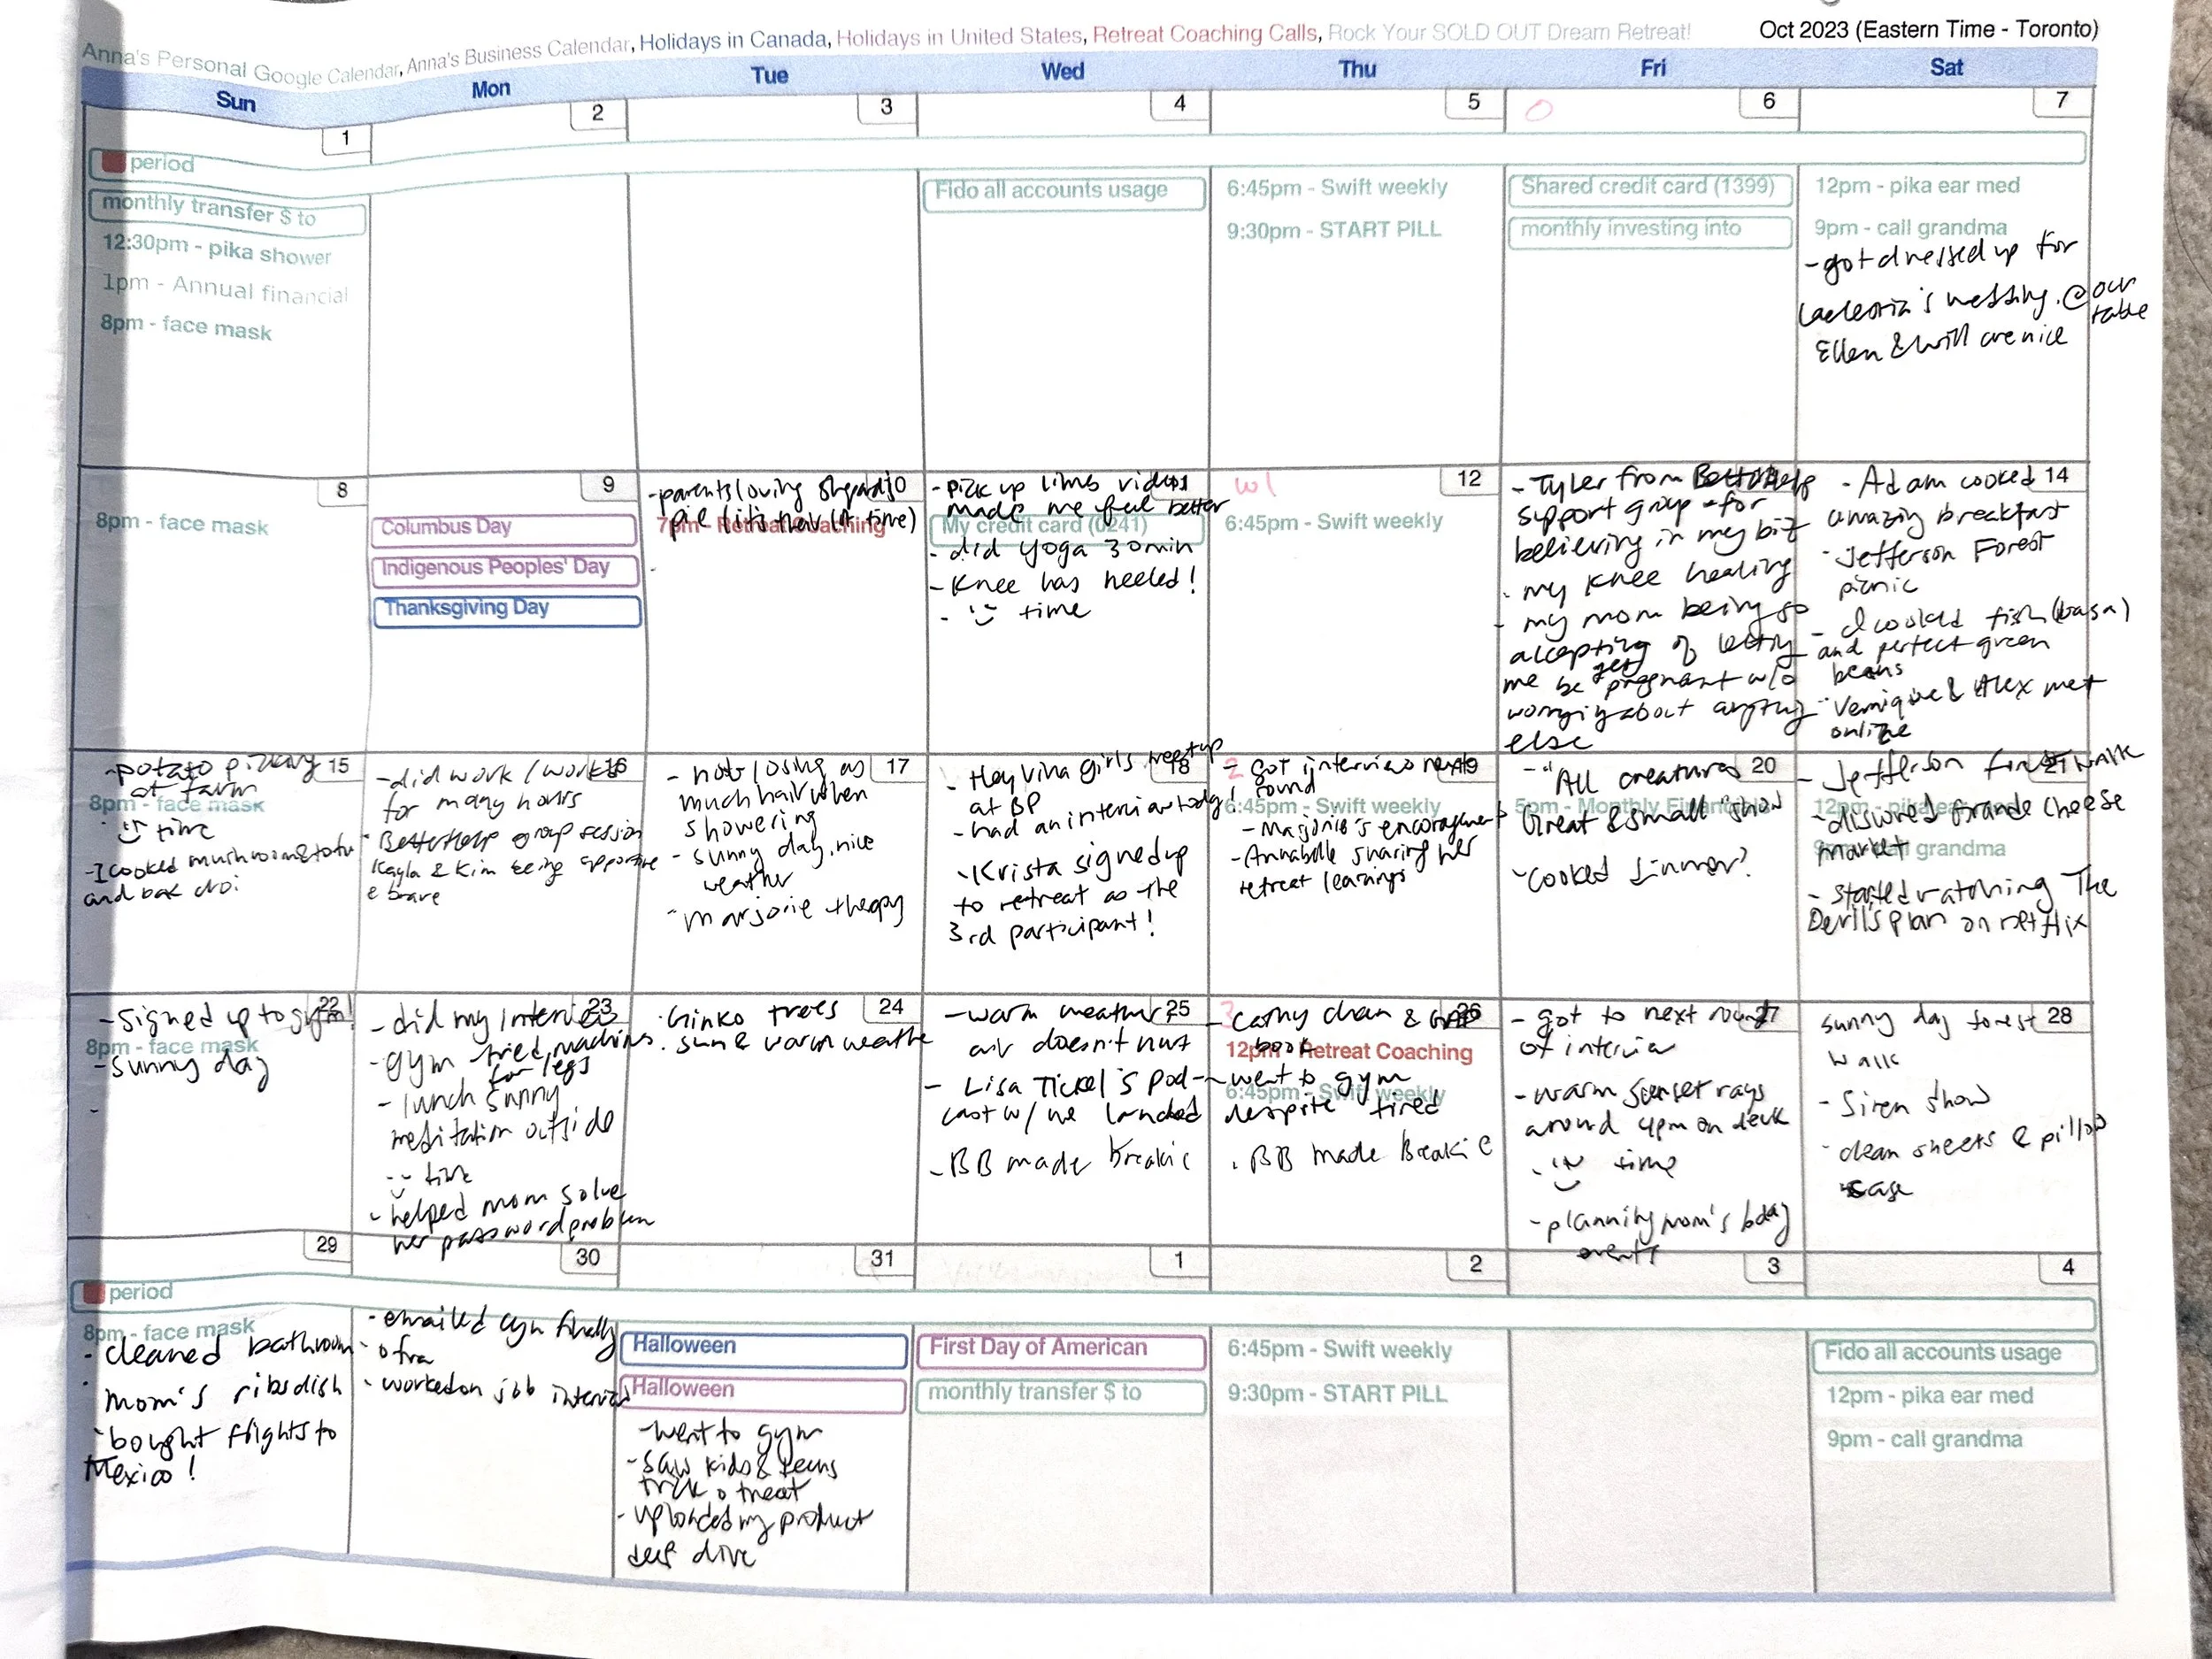 Anna's Personal Google Calendar, Anna's Business Calendar, Holidays in Canada, Holidays in United States, Retreat Coaching Calls, Rock Your SOLD OUT Dream Retreat!
Oct 2023 (Eastern Time - Toronto)
Sun Mon Tue Wed Thu Fri Sat
1
period
monthly transfer $ to
12:30pm - pika shower
1pm - Annual financial
8pm - face mask
2
3
4
Fido all accounts usage
5
6:45pm - Swift weekly
9:30pm - START PILL
0
6
Shared credit card (1399)
monthly investing into
7
12pm - pika ear med
9pm - call grandma
- got dressed up for
wedding. @ our
table
Ellen & Will are nice
8
8pm - face mask
9
Columbus Day
Indigenous Peoples' Day
Thanksgiving Day
10
- parents loving
pie
7pm - Retreat Coaching
11
- pick up limb videos
made me feel better
My credit card (0241)
- did yoga 30min
- Knee has heeled!
- time
w1
12
6:45pm - Swift weekly
- Tyler from BetterHelp
support group - for
believing in my biz
- my knee healing
- my mom being so
accepting of
me be pregnant w/o
worrying about anything
else
14
- Adam cooked
amazing breakfast
- Jefferson Forest
picnic
- I cooked fish (basa)
and perfect green
beans
& Alex met
online
15
- potato picking
at farm
8pm - face mask
time
- I cooked mushroom & tofu
and bok choi
16
- did work / works
for many hours
- BetterHelp group session
Kayla & Kim being supportive
& brave
17
- not losing as
much hair when
showering
- sunny day, nice
weather
- marjorie therapy
18
- Hey Vina girls meetup
at BP
- had an interview today!
- Krista signed up
to retreat as the
3rd participant!
2
19
- got interview next
round
6:45pm - Swift weekly
- Marjorie's encouragement
- Annabelle sharing her
retreat learnings
20
- "All creatures
5pm - Monthly Financials
Great & small" show
- cooked dinner?
21
- Jefferson forest walk
12pm - pika ear med
- discovered Grande Cheese
market
9pm - call grandma
- started watching The
Devil's plan on netflix
22
- signed up to gym!
8pm - face mask
- sunny day
23
- did my interview
- gym - tried machines
for legs
- lunch sunny
meditation outside
time
- helped mom solve
her password problem
24
- Ginko trees
- sun & warm weather
25
- warm weather,
air doesn't hurt
- Lisa Tickel's pod-
cast w/ we launched
- BB made breakie
3
26
- Cathy chan &
book
12pm - Retreat Coaching
- went to gym
6:45pm - Swift weekly
despite tired
- BB made Breakie
27
- got to next round
of interview
- warm sunset rays
around 4pm on deck
time
- planning mom's bday
events
28
sunny day forest
walk
- Siren show
- clean sheets & pillow
case
29
period
8pm - face mask
- cleaned bathroom
- mom's ribs dish
- bought flights to
Mexico!
30
- emailed finally
- worked on job interview
31
Halloween
Halloween
- went to gym
- saw kids & teens
trick o treat
- uploaded my product
deep dive
1
First Day of American
monthly transfer $ to
2
6:45pm - Swift weekly
9:30pm - START PILL
3
4
Fido all accounts usage
12pm - pika ear med
9pm - call grandma